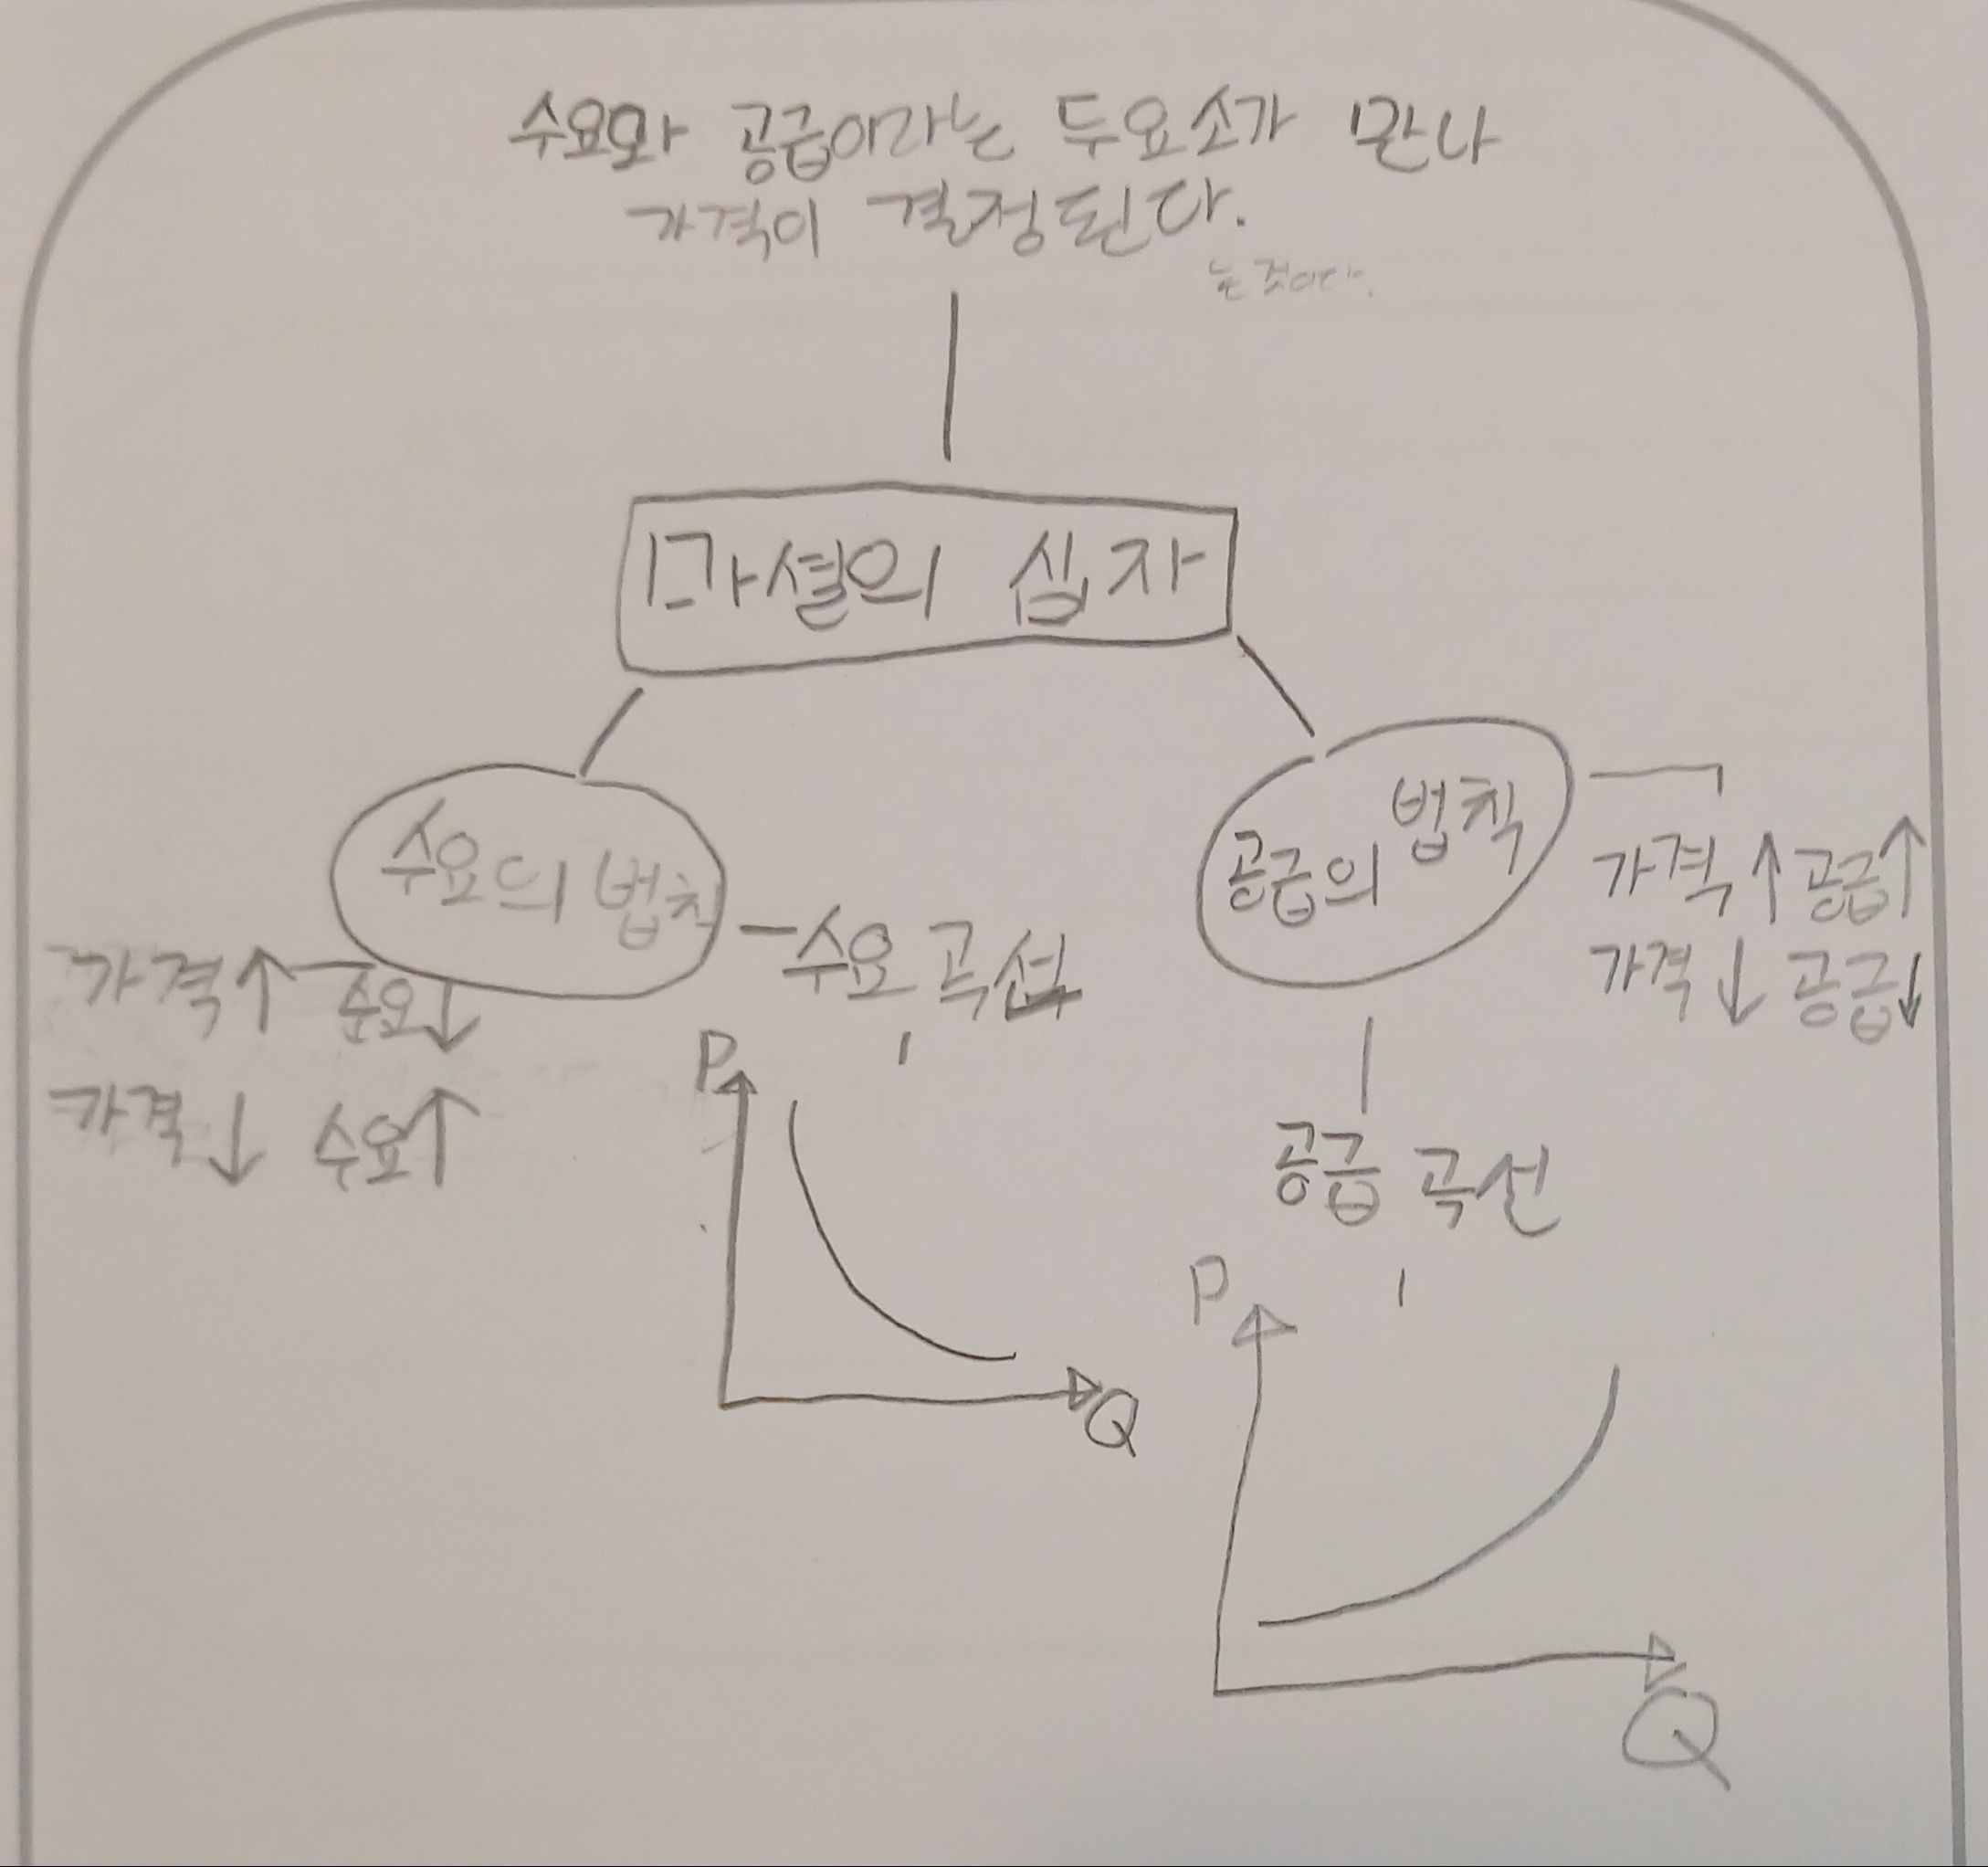 수요와 공급이라는 두요소가 만나
가격이 결정된다.
는 것이다.
마셜의 십자
수요의 법칙
공급의 법칙
가격↑ 공급↑
가격↓ 공급↓
수요 곡선
가격↑ 수요↓
가격↓ 수요↑
P
Q
공급 곡선
P
Q